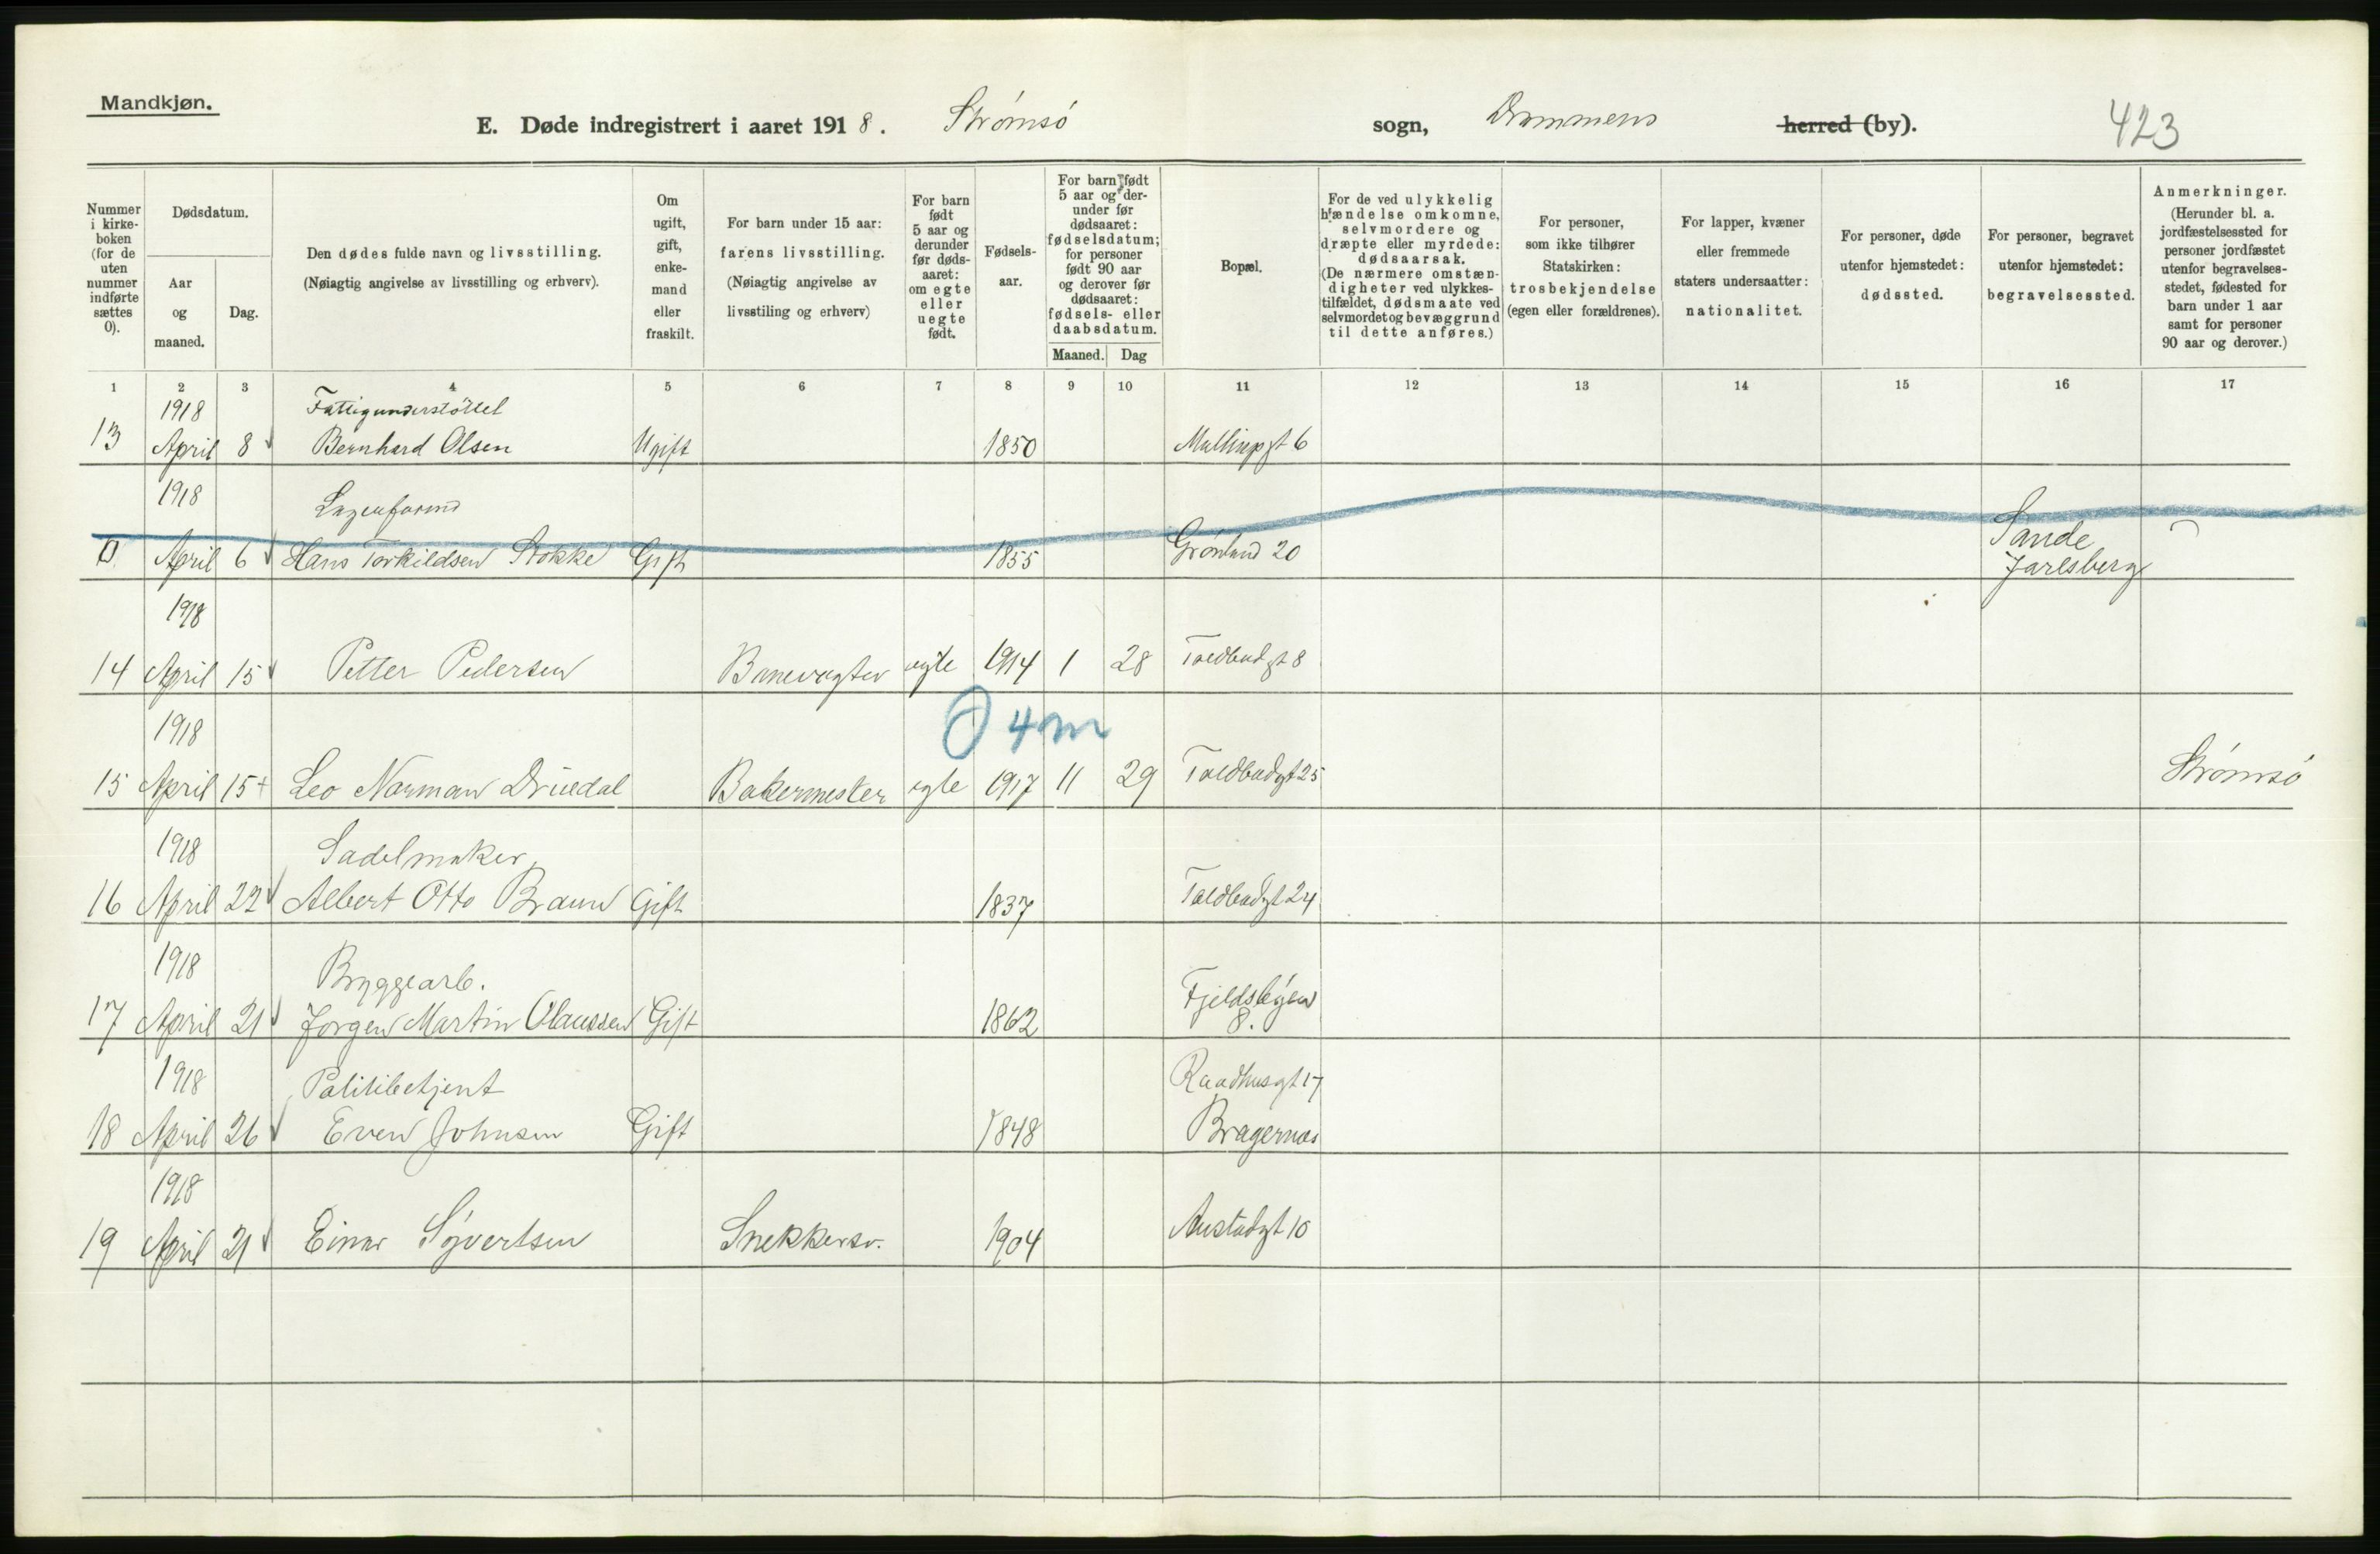 Mandkjøn.
E. Døde indregistrert i aaret 1918. Strømsø sogn, Drammens herred (by). 423
Nummer i kirke-boken (for de uten nummer indførte sættes 0).
Dødsdatum.
Aar og maaned.
Dag.
Den dødes fulde navn og livsstilling.
(Nøiagtig angivelse av livsstilling og erhverv).
Om ugift, gift, enke-mand eller fraskilt.
For barn under 15 aar: farens livsstilling.
(Nøiagtig angivelse av livsstiling og erhverv)
For barn født 5 aar og derunder før døds-aaret: om egte eller uegte født.
Fødsels-aar.
For barn født 5 aar og der-under før dødsaaret: fødselsdatum; for personer født 90 aar og derover før dødsaaret: fødsels- eller daabsdatum.
Maaned. Dag
Bopæl.
For de ved ulykkelig hændelse omkomne, selvmordere og dræpte eller myrdede: dødsaarsak.
(De nærmere omstæn-digheter ved ulykkes-tilfældet, dødsmaate ved selvmordet og bevæggrund til dette anføres.)
For personer, som ikke tilhører Statskirken: trosbekjendelse (egen eller forældrenes).
For lapper, kvæner eller fremmede staters undersaatter: nationalitet.
For personer, døde utenfor hjemstedet: dødssted.
For personer, begravet utenfor hjemstedet: begravelsessted.
Anmerkninger.
(Herunder bl. a. jordfæstelsessted for personer jordfæstet utenfor begravelses-stedet, fødested for barn under 1 aar samt for personer 90 aar og derover.)
1 2 3 4 5 6 7 8 9 10 11 12 13 14 15 16 17
1918 Fattigunderstöttet
13 April 8 Bernhard Olsen Ugift 1850 6
1918
0 April 6 Hans Torkildsen Stokke Gift 1855 Grønland 20 Sande Jarlsberg
1918
14 April 15 Petter Pedersen Banevogter egte 1914 1 28 Toldbodgt 8
1918 4 m
15 April 15 Leo Norman egte 1917 11 29 Bakermester Toldbodgt 25 Strømsø
1918 Sadelmaker
16 April 22 Albert Otto Braun Gift 1837 Toldbodgt 24
1918 Bryggearb.
17 April 21 Jorgen Martin Olaussen Gift 1862 8.
1918 Politibetjent Raadhusgt 17
18 April 26 Even Johnsen Gift 1848 Bragernæs
1918
19 April 21 Einar Syvertsen Snekkersv. 1904 Austadgt 10